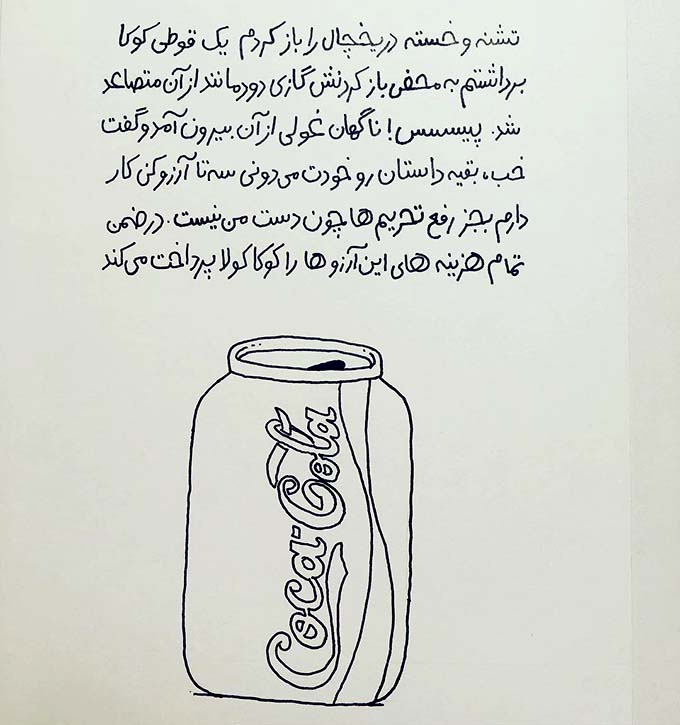 تشنه و خسته در یخچال را باز کردم یک قوطی کوکا
برداشتم به محض باز کردنش گازی دود مانند از آن متصاعد
شد. پیسسس! ناگهان غولی از آن بیرون آمد و گفت
خب، بقیه داستان رو خودت می‌دونی سه تا آرزو کن کار
دارم بجز رفع تحریم ها چون دست من نیست. در ضمن
تمام هزینه های این آرزو ها را کوکا کولا پرداخت می‌کند
Coca-Cola